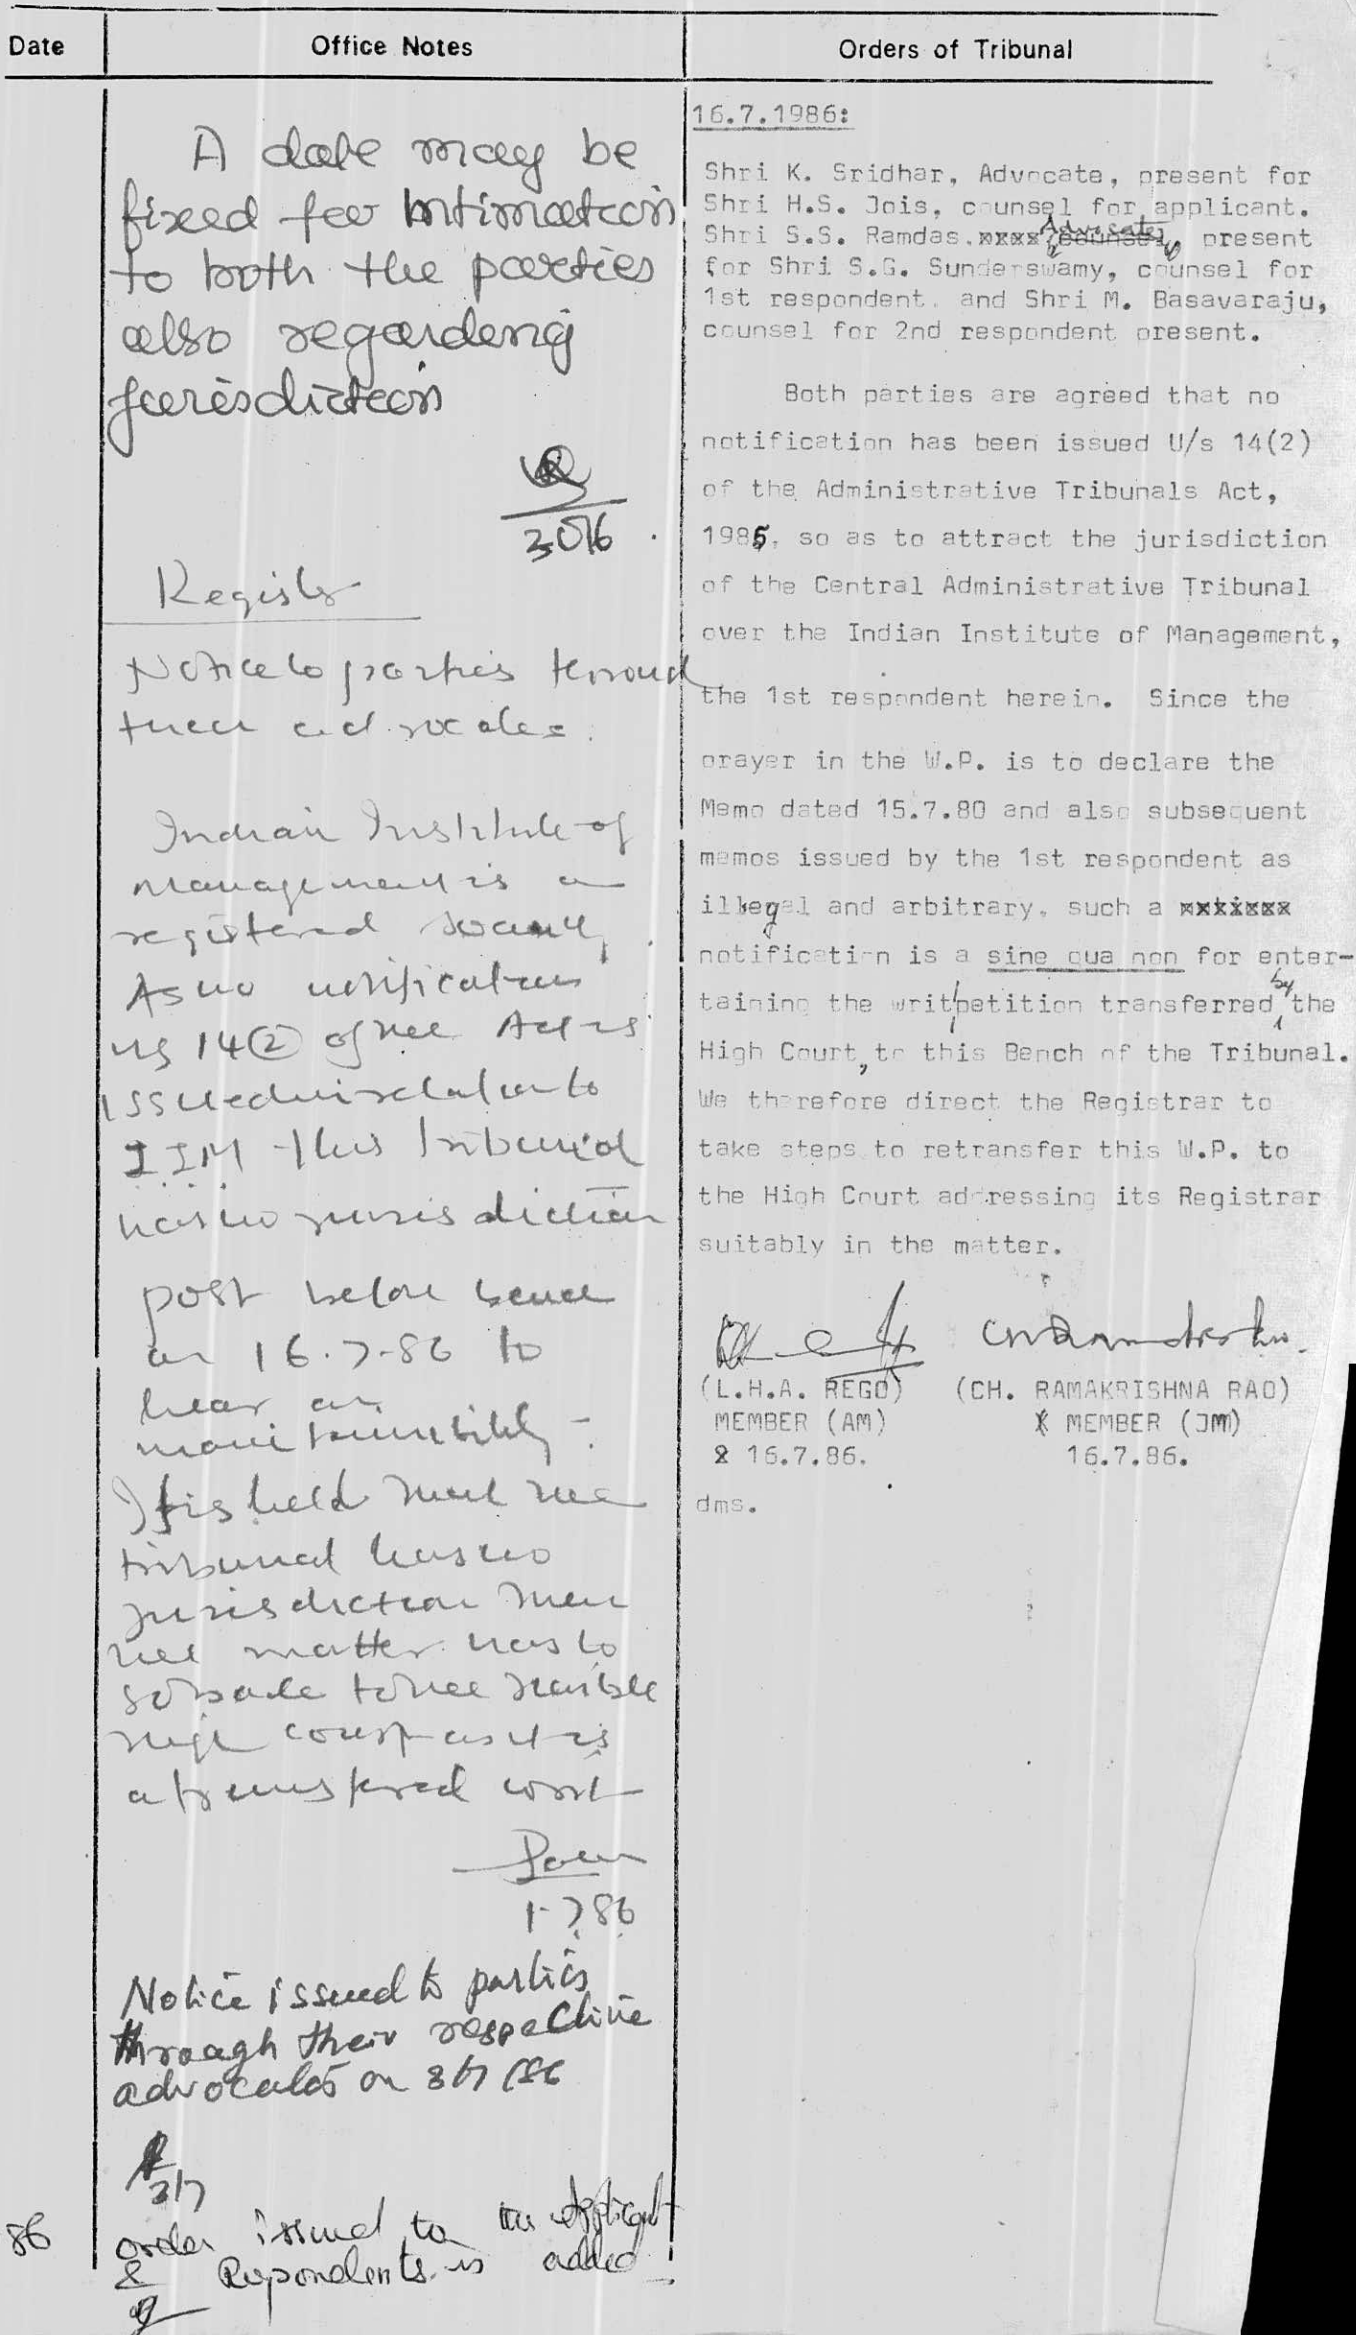 Date
Office Notes
Orders of Tribunal
A date may be
fixed for intimation
to both the parties
also regarding
jurisdiction
30/6
Registrar
Notice to parties through
their advocates.
Indian Institute of
management is a
registered society.
As no notification
u/s 14(2) of the Act is
issued in relation to
IIM this Tribunal
has no jurisdiction
post before bench
on 16.7.86 to
hear on
maintainability.
If is held that the
tribunal has no
jurisdiction then
the matter has to
go back to the Hon'ble
High court as it is
a transferred writ
1.7.86
Notice issued to parties
through their respective
advocates on 3/7/86
3/7
86
order issued to the applicant
& Respondents is added
16.7.1986:
Shri K. Sridhar, Advocate, present for
Shri H.S. Jois, counsel for applicant.
Shri S.S. Ramdas, xxxx counsel Advocate, present
for Shri S.G. Sunderswamy, counsel for
1st respondent, and Shri M. Basavaraju,
counsel for 2nd respondent present.
Both parties are agreed that no
notification has been issued U/s 14(2)
of the Administrative Tribunals Act,
1985, so as to attract the jurisdiction
of the Central Administrative Tribunal
over the Indian Institute of Management,
the 1st respondent herein. Since the
prayer in the W.P. is to declare the
Memo dated 15.7.80 and also subsequent
memos issued by the 1st respondent as
illegal and arbitrary, such a xxxxxxx
notification is a sine qua non for enter-
taining the writ petition transferred by the
High Court, to this Bench of the Tribunal.
We therefore direct the Registrar to
take steps to retransfer this W.P. to
the High Court addressing its Registrar
suitably in the matter.
(L.H.A. REGO) (CH. RAMAKRISHNA RAO)
MEMBER (AM) MEMBER (JM)
16.7.86. 16.7.86.
dms.